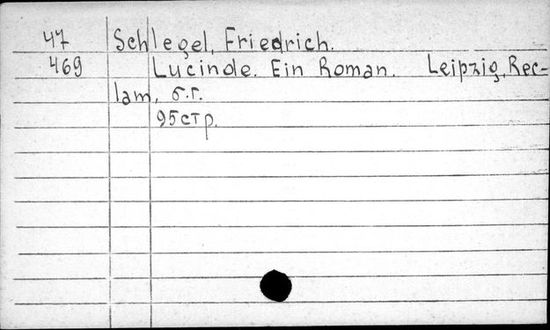 47 Schlegel, Friedrich.
469 Lucinde. Ein Roman. Leipzig, Rec-
lam, б.г.
95 стр.